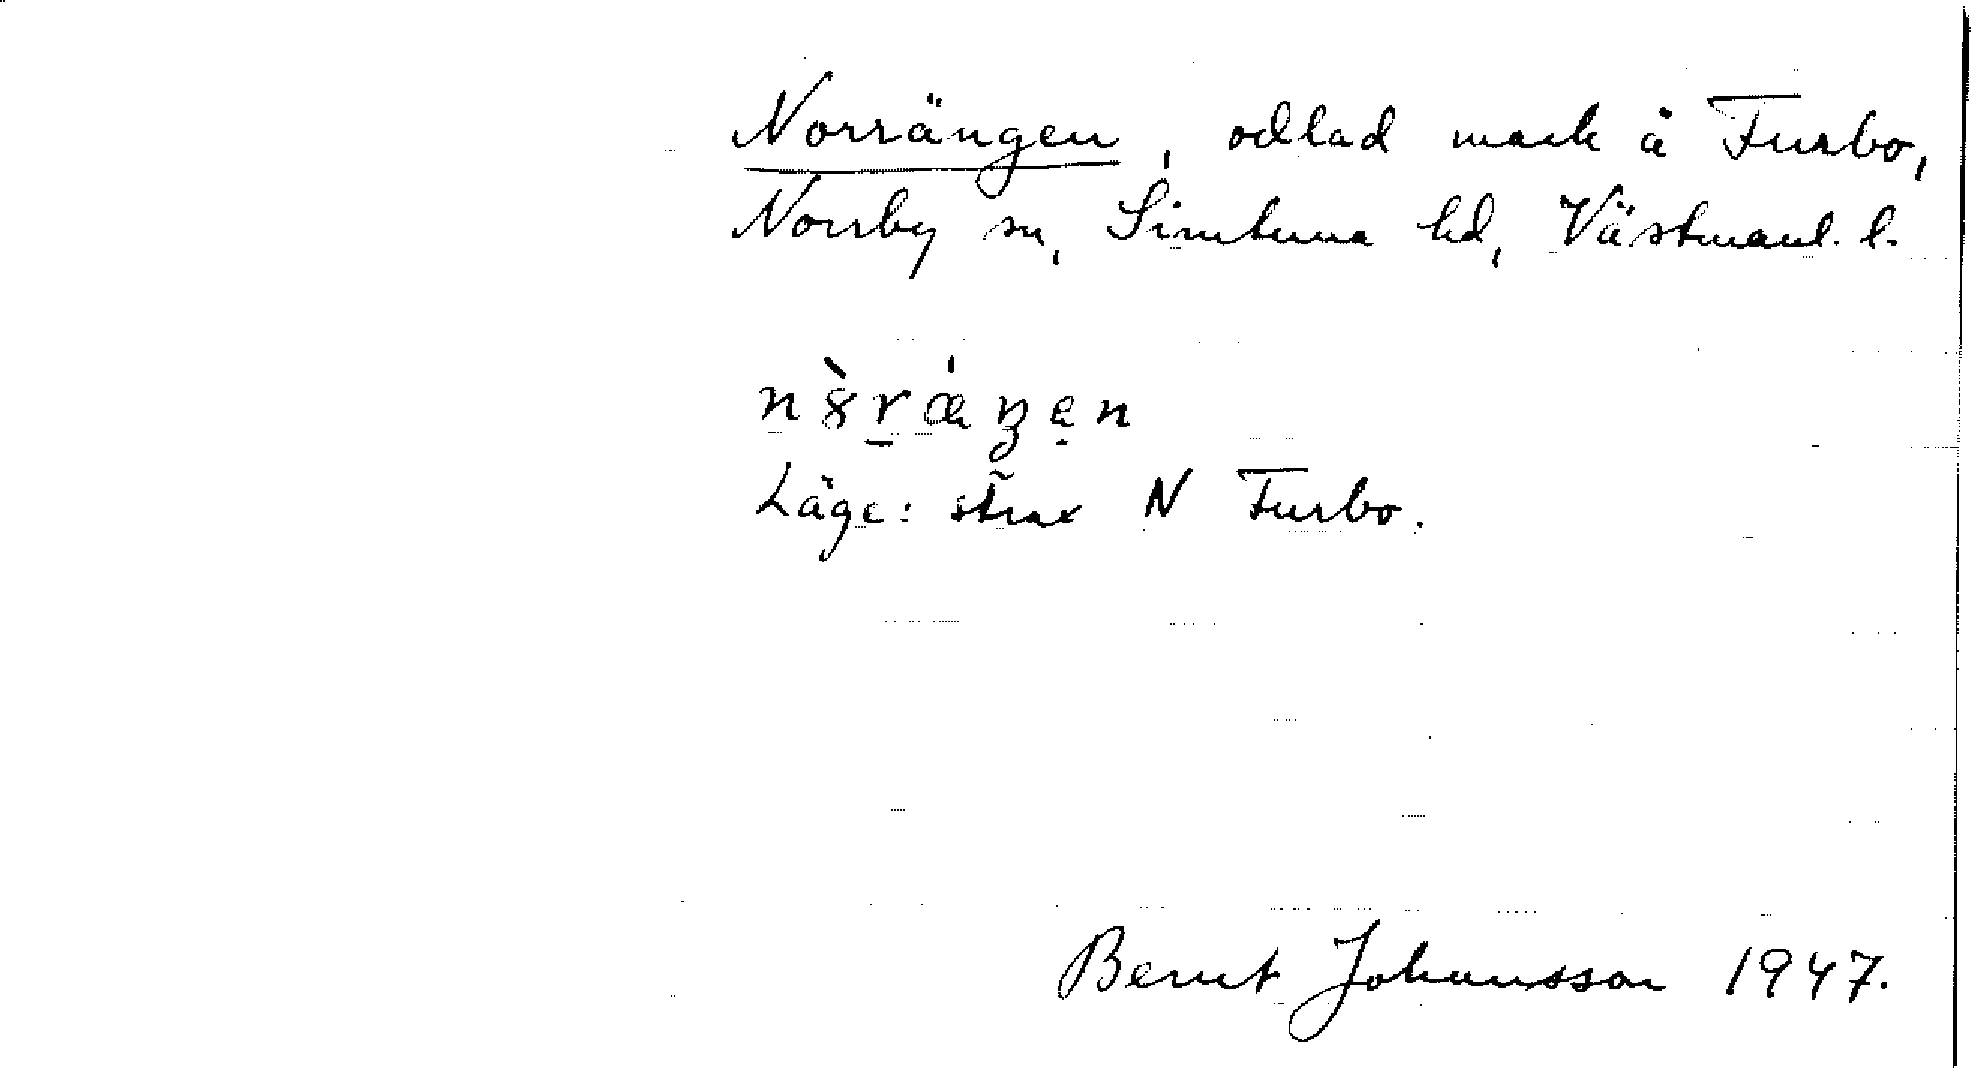 Norrängen, odlad mark å Turbo,
Norrby sn, Simtuna hd, Västmanl. l.
Läge: strax N Turbo.
Bernt Johansson 1947.